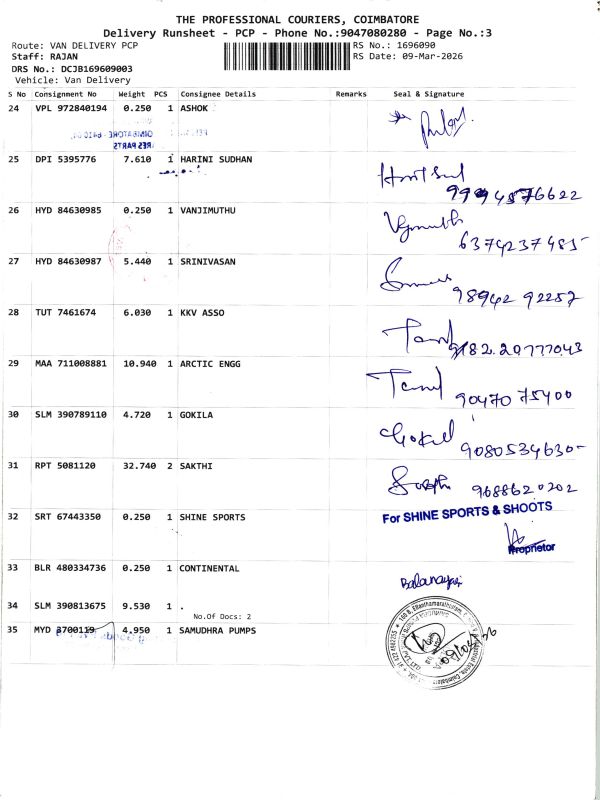 THE PROFESSIONAL COURIERS, COIMBATORE
Delivery Runsheet - PCP - Phone No.:9047080280 - Page No.:3
Route: VAN DELIVERY PCP RS No.: 1696090
Staff: RAJAN RS Date: 09-Mar-2026
DRS No.: DCJB169609003
Vehicle: Van Delivery
S No Consignment No Weight PCS Consignee Details Remarks Seal & Signature
24 VPL 972840194 0.250 1 ASHOK
25 DPI 5395776 7.610 1 HARINI SUDHAN
9994576622
26 HYD 84630985 0.250 1 VANJIMUTHU
6374237485
27 HYD 84630987 5.440 1 SRINIVASAN
98942 92257
28 TUT 7461674 6.030 1 KKV ASSO
29 MAA 711008881 10.940 1 ARCTIC ENGG
90470 75400
30 SLM 390789110 4.720 1 GOKILA
Gokil
9080534630
31 RPT 5081120 32.740 2 SAKTHI
9688620202
32 SRT 67443350 0.250 1 SHINE SPORTS
For SHINE SPORTS & SHOOTS
Proprietor
33 BLR 480334736 0.250 1 CONTINENTAL
34 SLM 390813675 9.530 1 .
No.Of Docs: 2
35 MYD 3700119 4.950 1 SAMUDHRA PUMPS